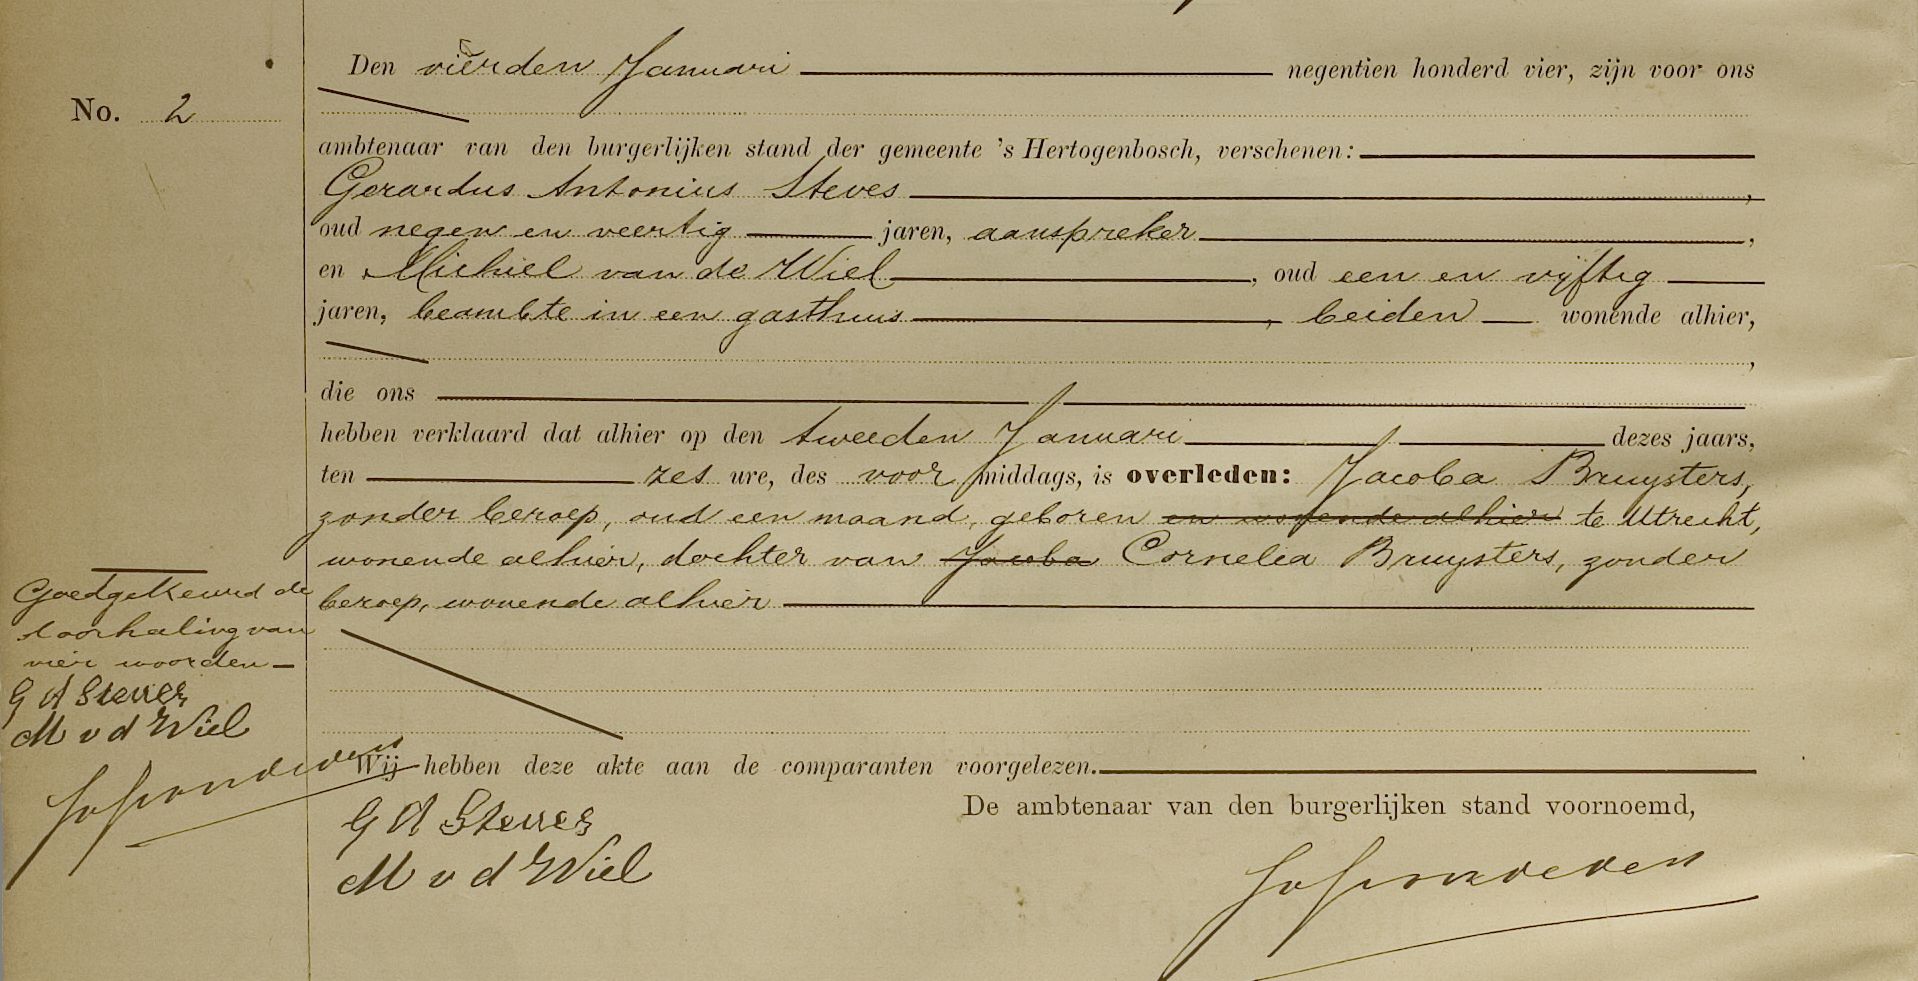 Den vierden Januari negentien honderd vier, zijn voor ons
No. 2
ambtenaar van den burgerlijken stand der gemeente 's Hertogenbosch, verschenen:
Gerardus Antonius Steves,
oud negen en veertig jaren, aanspreker,
en Michiel van de Wiel, oud een en vijftig
jaren, beambte in een gasthuis, beiden wonende alhier,
die ons
hebben verklaard dat alhier op den tweeden Januari dezes jaars,
ten zes ure, des voor middags, is overleden: Jacoba Bruysters,
zonder beroep, oud een maand, geboren en wonende alhier te Utrecht,
wonende alhier, dochter van Jacoba Cornelia Bruysters, zonder
beroep, wonende alhier
Goedgekeurd de
doorhaling van
vier woorden
G A Steves
M v d Wiel
Wij hebben deze akte aan de comparanten voorgelezen.
De ambtenaar van den burgerlijken stand voornoemd,
G A Steves
M v d Wiel